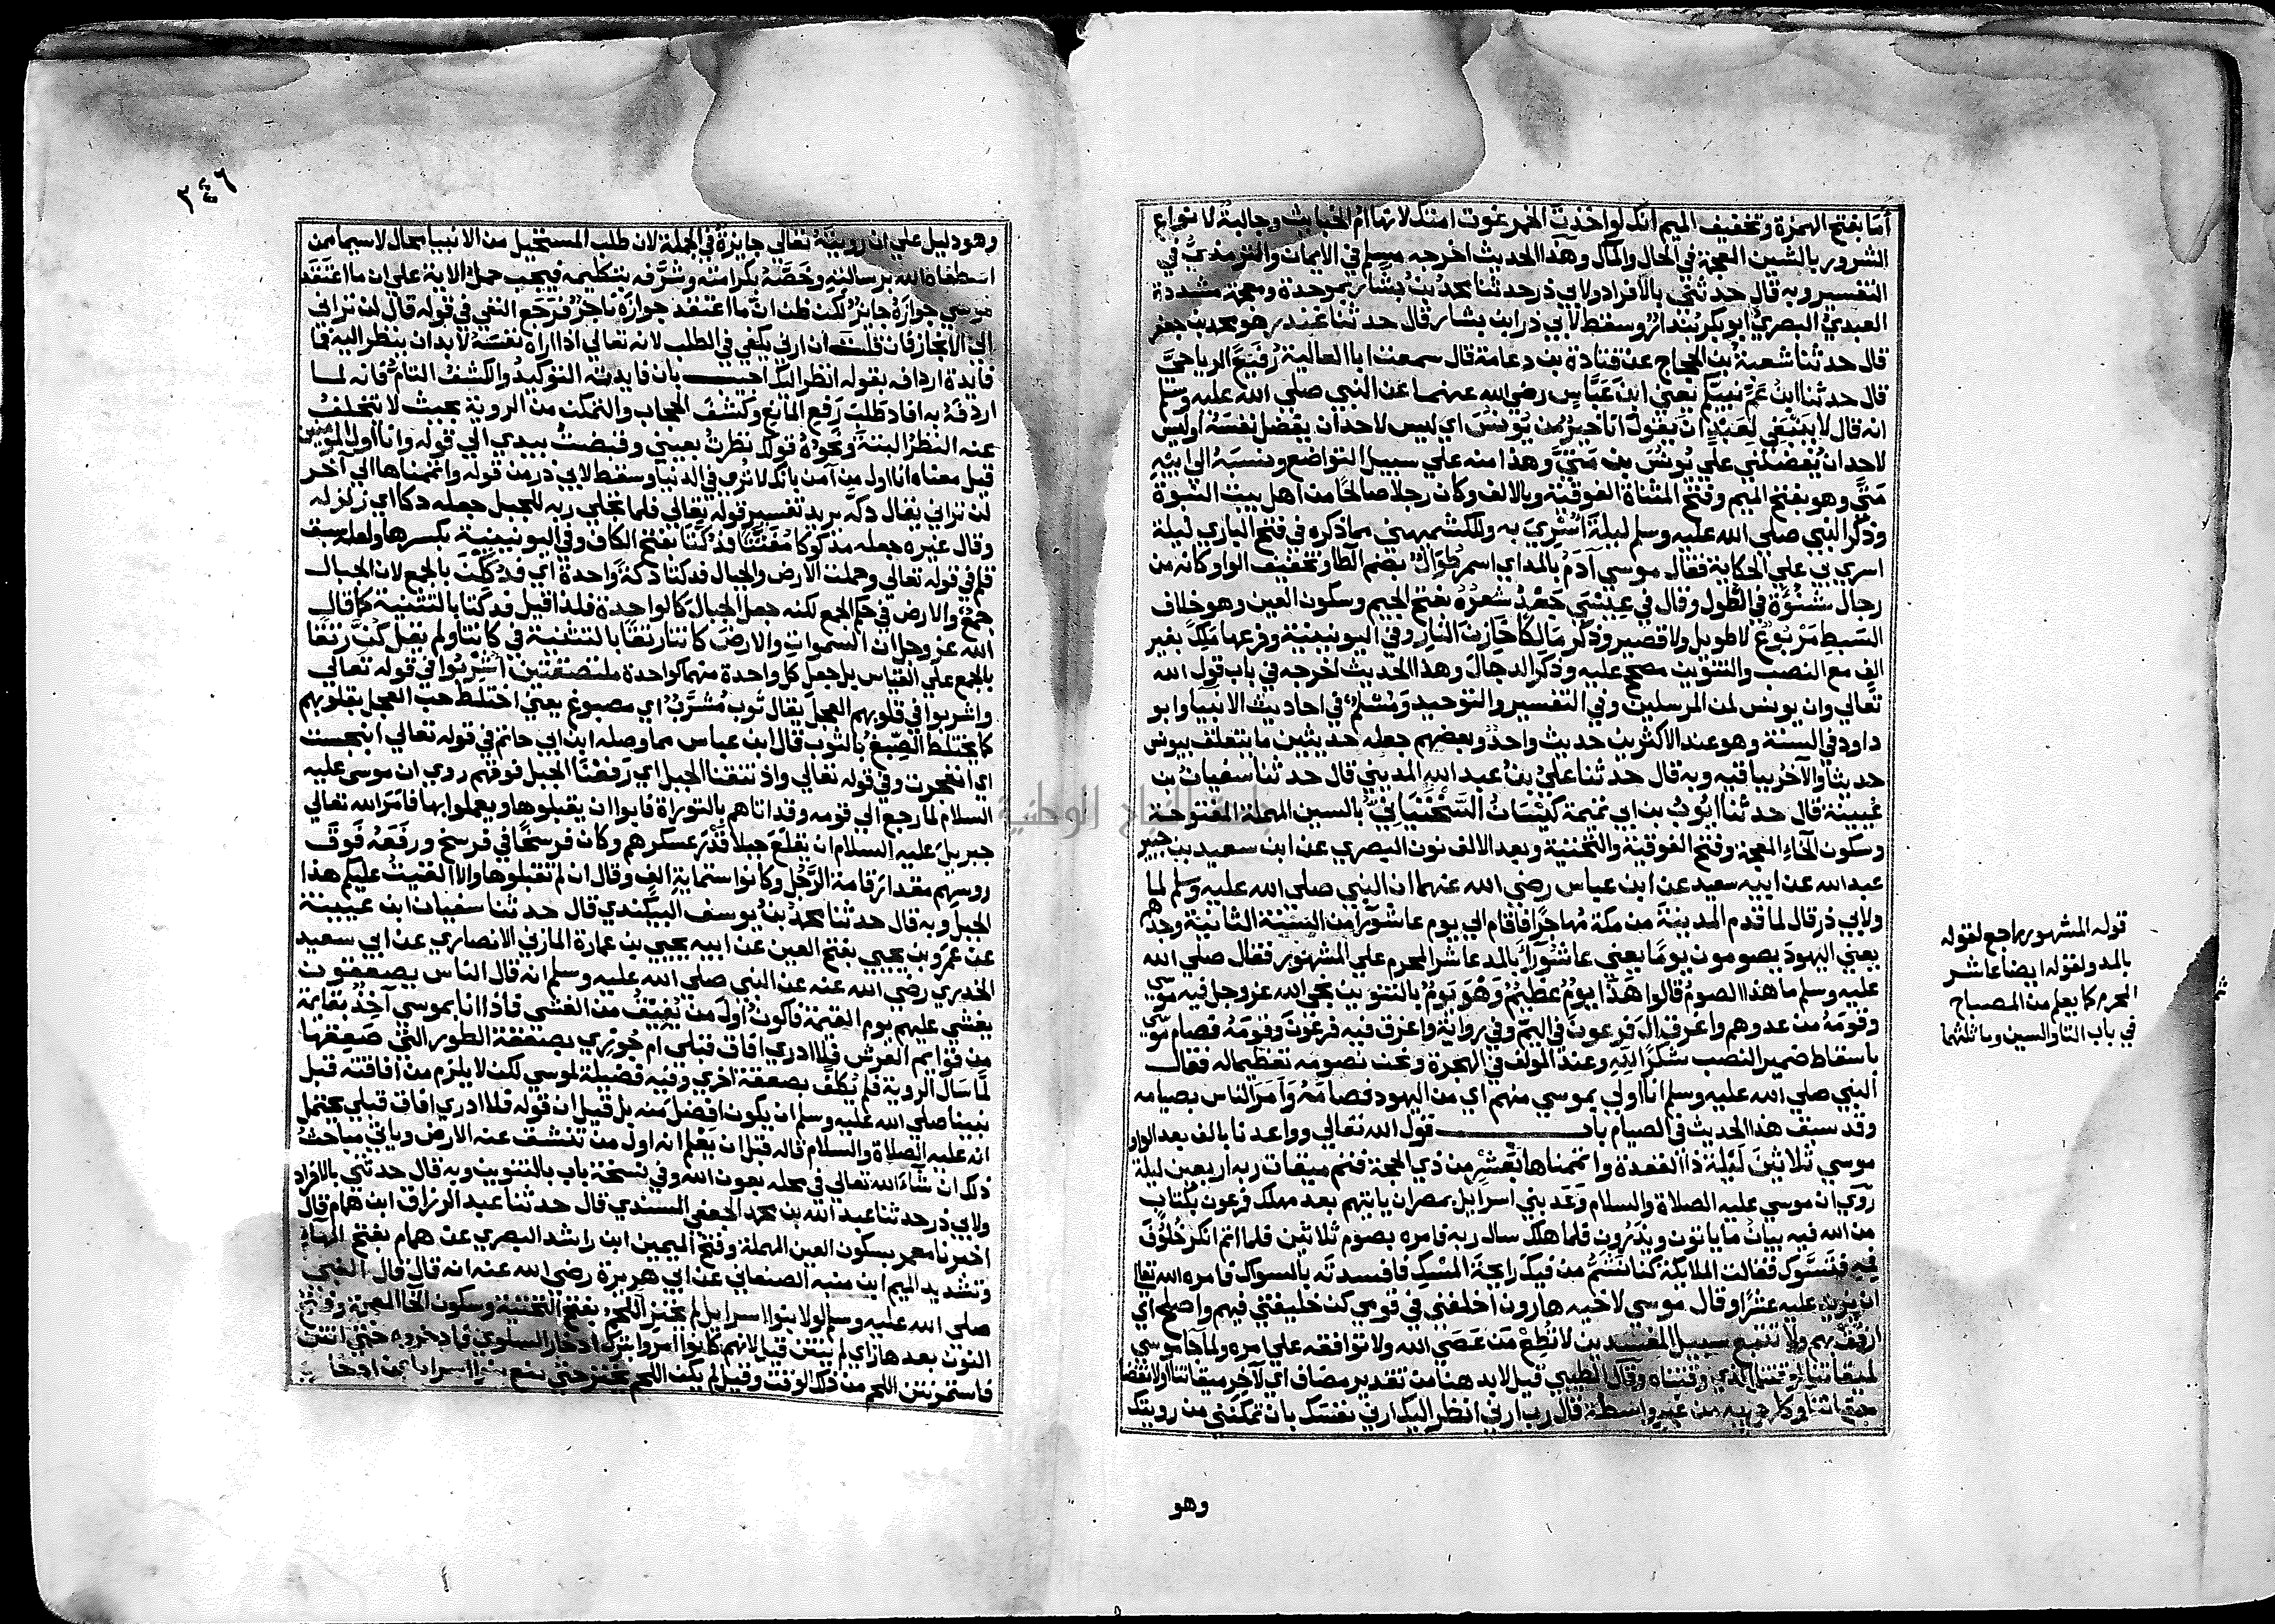 أما بفتح الهمزة وتخفيف الميم انك لو اخذت الخمر غوت امتك لانها ام الخبايث وجالبة لانواع
الشرور بالشين المعجمة في الحال والمآل وهذا الحديث اخرجه مسلم في الايمان والترمذي في
التفسير وبه قال حدثني بالافراد ولابي ذر حدثنا محمد بن بشار بموحدة ومعجمة مشددة
العبدي البصري ابو بكر بندار وسقط لابي ذر ابن بشار قال حدثنا غندر هو محمد بن جعفر
قال حدثنا شعبة بن الحجاج عن قتادة بن دعامة قال سمعت ابا العالية رفيع الرياحي
قال حدثنا ابن عم نبيكم يعني ابن عباس رضي الله عنهما عن النبي صلي الله عليه وسلم
انه قال لا ينبغي لعبد ان يقول انا خير من يونس اي ليس لاحد ان يفضل نفسه او ليس
لاحد ان يفضلني علي يونس بن متي وهذا منه علي سبيل التواضع ونسبه الي ابيه
متي وهو بفتح الميم وفتح المثناة الفوقية وبالالف وكان رجلا صالحا من اهل بيت النبوة
وذكر النبي صلي الله عليه وسلم ليلة اسري به وللكشميهني مما ذكره في فتح الباري ليلة
اسري بي علي الحكاية فقال موسي آدم بالمد اي اسمر طوال بضم الطا وتخفيف الواو كانه من
رجال شنوءة في الطول وقال في عيسي جعد شعره بفتح الجيم وسكون العين وهو خلاف
السبط مربوع لا طويل ولا قصير وذكر مالكا خازن النار وفي اليونينية وفرعها ملك بغير
الف مع النصب والتنوين مصحح عليه وذكر الدجال وهذا الحديث اخرجه في باب قول الله
تعالي وان يونس لمن المرسلين وفي التفسير والتوحيد ومسلم في احاديث الانبيا وابو
داود في السنة وهو عند الاكثرين حديث واحد وبعضهم جعله حديثين ما يتعلق بيونس
حديثا والآخر بباقيه وبه قال حدثنا علي بن عبد الله المديني قال حدثنا سفيان بن
عيينة قال حدثنا ايوب بن ابي تميمة كيسان السختياني بالسين المهملة المفتوحة
وسكون الخاء المعجمة وفتح الفوقية والتحتية وبعد الالف نون البصري عن ابن سعيد بن جبير
عبد الله عن ابيه سعيد عن ابن عباس رضي الله عنهما ان النبي صلي الله عليه وسلم لما
ولابي ذر قال لما قدم المدينة من مكة مهاجرا فاقام الي يوم عاشورا من السنة الثانية وجدهم
يعني اليهود يصومون يوما يعني عاشورا بالمد عاشر المحرم علي المشهور فقال صلي الله
عليه وسلم ما هذا الصوم قالوا هذا يوم عظيم وهو يوم بالتنوين نجي الله عز وجل فيه موسي
وقومه من عدوهم واغرق آل فرعون في اليم وفي رواية واغرق فيه فرعون وقومه فصام موسي
باسقاط ضمير النصب شكرا لله وعند المولف في الهجرة ونحن نصومه تعظيما له فقال
النبي صلي الله عليه وسلم انا اولي بموسي منهم اي من اليهود فصامه وامر الناس بصيامه
وقد سبق هذا الحديث في الصيام باب قول الله تعالي وواعدنا بالف بعد الواو
موسي ثلاثين ليلة ذا القعدة واتممناها بعشر من ذي الحجة فتم ميقات ربه اربعين ليلة
روي ان موسي عليه الصلاة والسلام وعد بني اسرايل بمصر ان ياتيهم بعد مهلك فرعون بكتاب
من الله فيه بيان ما ياتون ويذرون فلما هلك سال ربه فامره بصوم ثلاثين فلما اتم انكر خلوف
فيه فتسوك فقالت الملايكة كنا نشم من فيك رايحة المسك فافسدته بالسواك فامره الله تعالي
ان يزيد عليه عشرا وقال موسي لاخيه هارون اخلفني في قومي كن خليفتي فيهم واصلح اي
ارفق بهم ولا تتبع سبيل المفسدين لا تطع من عصي الله ولا توافقه علي امره ولما جا موسي
لميقاتنا لوقتنا الذي وقتناه وقال الطيبي قيل لا بد هنا من تقدير مضاف اي لآخر ميقاتنا او لانقضا
ميقاتنا وكلمه ربه من غير واسطة قال رب ارني انظر اليك ارني نفسك بان تمكنني من رويتك
وهو
قوله المشهور راجع لقوله
بالمد ولقوله ايضا عاشر
المحرم كما يعلم من المصباح
في باب التا والسين وما ثلثهما
٣٤٦
وهو دليل علي ان رويته تعالي جايزة في الجملة لان طلب المستحيل من الانبيا محال لا سيما من
اصطفاه الله برسالته وخصه بكرامته وشرفه بتكليمه فيجب حمل الاية علي ان ما اعتقد
موسي جوازه جايز لكن ظن ان ما اعتقد جوازه ناجز فرجع النفي في قوله قال لن تراني
الي الانجاز فان قلت ان ارني يكفي في الطلب لانه تعالي اذا اراه نفسه لا بد ان ينظر اليه فما
فايدة اردافه بقوله انظر اليك اجيب بان فايدته التوكيد والكشف التام فانه لما
اردفه به افاد طلب رفع المانع وكشف الحجاب والتمكن من الروية بحيث لا يتخلف
عنه النظر البتة ونحوه قولك نظرت بعيني وقبضت بيدي الي قوله وانا اول المومنين
قيل معناه انا اول من آمن بانك لا تري في الدنيا وسقط لابي ذر من قوله واتممناها الي آخر
لن تراني يقال دكه يريد تفسير قوله تعالي فلما تجلي ربه للجبل جعله دكا اي زلزله
وقال غيره جعله مدكوكا مفتتا فدكتا بفتح الكاف وفي اليونينية بكسرها ولعله سبق
قلم في قوله تعالي وحملت الارض والجبال فدكتا دكة واحدة اي فدككن بالجمع لان الجبال
جمع والارض في حكم الجمع لكنه جعل الجبال كالواحدة فلذا قيل فدكتا بالتثنية كما قال
الله عز وجل ان السموات والارض كانتا رتقا بالتثنية في كانتا ولم يقل كن رتقا
بالجمع علي القياس بل جعل كل واحدة منهما كواحدة ملتصقتين اشربوا في قوله تعالي
واشربوا في قلوبهم العجل يقال ثوب مشرب اي مصبوغ يعني اختلط حب العجل بقلوبهم
كما يختلط الصبغ بالثوب قال ابن عباس مما وصله ابن ابي حاتم في قوله تعالي انبجست
اي انفجرت وفي قوله تعالي واذ نتقنا الجبل اي رفعنا الجبل فوقهم روي ان موسي عليه
السلام لما رجع الي قومه وقد اتاهم بالتوراة فابوا ان يقبلوها ويعملوا بها فامر الله تعالي
جبريل عليه السلام ان يقلع جبلا قدر عسكرهم وكان فرسخا في فرسخ ورفعه فوق
روسهم مقدار قامة الرجل وكانوا ستماية الف وقال ان لم تقبلوها والا القيت عليكم هذا
الجبل وبه قال حدثنا محمد بن يوسف البيكندي قال حدثنا سفيان ابن عيينة
عن عمرو بن يحيي بفتح العين عن ابيه يحيي بن عمارة المازني الانصاري عن ابي سعيد
الخدري رضي الله عنه عن النبي صلي الله عليه وسلم انه قال الناس يصعقون
يغشي عليهم يوم القيمة فاكون اول من يفيق من الغشي فاذا انا بموسي آخذ بقايمة
من قوايم العرش فلا ادري افاق قبلي ام جوزي بصعقة الطور التي صعقها
لما سال الروية فلم يكلف بصعقة اخري وفيه فضيلة لموسي لكن لا يلزم من افاقته قبل
نبينا صلي الله عليه وسلم ان يكون افضل منه بل قيل ان قوله فلا ادري افاق قبلي يحتمل
انه عليه الصلاة والسلام قاله قبل ان يعلم انه اول من تنشق عنه الارض وياتي مباحث
ذلك ان شاء الله تعالي في محله بعون الله وفي نسخة باب بالتنوين وبه قال حدثني بالافراد
ولابي ذر حدثنا عبد الله بن محمد الجعفي المسندي قال حدثنا عبد الرزاق ابن همام قال
اخبرنا معمر بسكون العين المهملة وفتح الميمين ابن راشد البصري عن همام بفتح الهاء
وتشديد الميم ابن منبه الصنعاني عن ابي هريرة رضي الله عنه انه قال قال النبي
صلي الله عليه وسلم لولا بنوا اسرايل لم يخنز اللحم بفتح التحتية وسكون الخا المعجمة وفتح
النون بعدها زاي لم ينتن قيل لانهم كانوا امروا بترك ادخار السلوي فادخروه حتي انتن
فاستمر نتن اللحم من ذلك الوقت وقيل لم يكن اللحم يخنز حتي منع بنوا اسرايل من ادخا
جامعة النجاح الوطنية